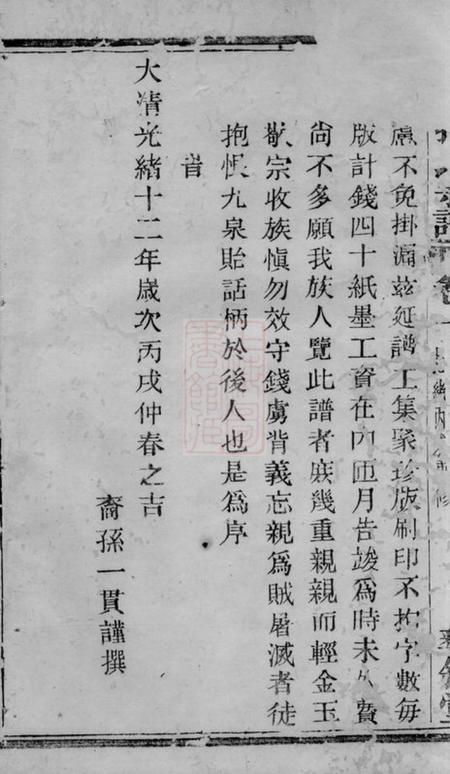 慮不免掛漏兹延譜工集聚珍版刷印不拘字數每
版計錢四十紙墨工資在內匝月告竣為時未久費
尚不多願我族人覽此譜者庶幾重親親而輕金玉
敬宗收族慎勿效守錢虜背義忘親為賊屠滅者徒
抱恨九泉貽話柄於後人也是為序
旹
大清光緒十二年歲次丙戌仲春之吉
裔孫一貫謹撰
光緒丙戌